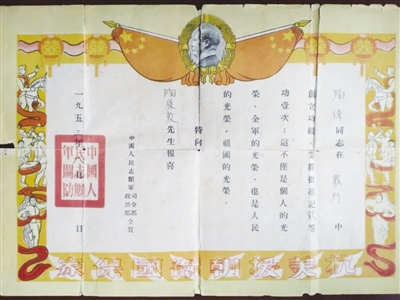 同志在 戰鬥 中
創立功績，業經批准記 等
功壹次；這不僅是個人的光
榮，全軍的光榮，也是人民
的光榮，祖國的光榮。
特向
陶慶 先生報喜
中國人民志願軍 司令部 政治部 仝賀
一九五 年 月 日
中國人
民志願
軍關防
抗美援朝衛國保家